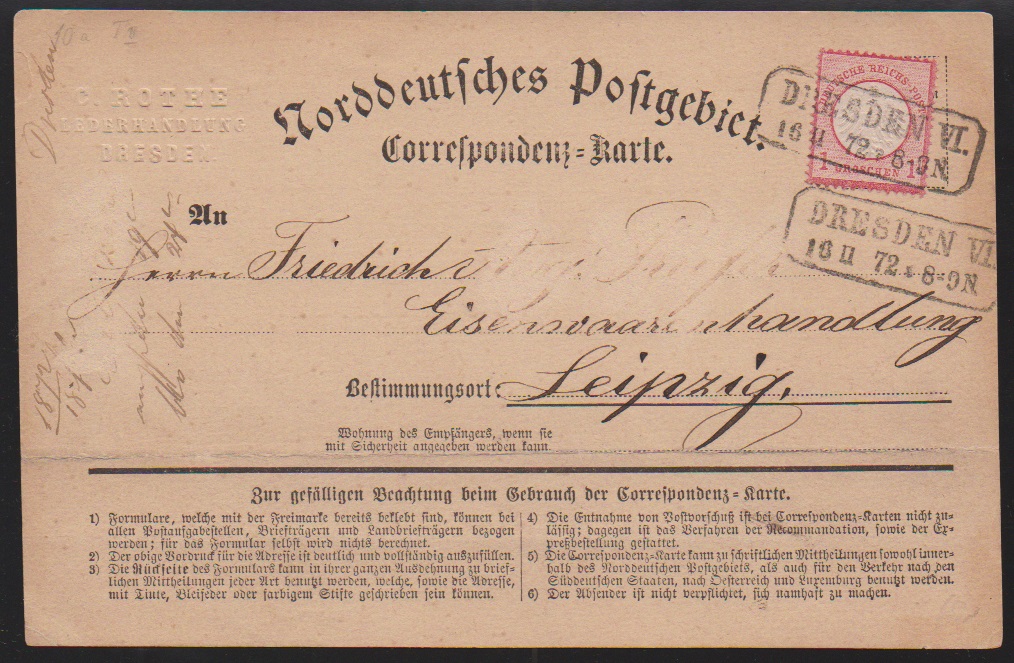 10a
Dresden
C. ROTHE
LEDERHANDLUNG
DRESDEN.
Norddeutsches Postgebiet.
Correspondenz-Karte.
DEUTSCHE REICHS-POST
1 GROSCHEN 1
DRESDEN VI.
16 II 72 8-9N
DRESDEN VI.
16 II 72 8-9N
An
Herrn Friedrich
Eisenwaarenhandlung
Bestimmungsort: Leipzig.
Wohnung des Empfängers, wenn sie
mit Sicherheit angegeben werden kann.
1872
187
Zur gefälligen Beachtung beim Gebrauch der Correspondenz-Karte.
1) Formulare, welche mit der Freimarke bereits beklebt sind, können bei
allen Postausgabestellen, Briefträgern und Landbriefträgern bezogen
werden; für das Formular selbst wird nichts berechnet.
2) Der obige Vordruck für die Adresse ist deutlich und vollständig auszufüllen.
3) Die Rückseite des Formulars kann in ihrer ganzen Ausdehnung zu brief-
lichen Mittheilungen jeder Art benutzt werden, welche, sowie die Adresse,
mit Tinte, Bleifeder oder farbigem Stifte geschrieben sein können.
4) Die Entnahme von Postvorschuß ist bei Correspondenz-Karten nicht zu-
lässig; dagegen ist das Verfahren der Recommandation, sowie der Ex-
preßbestellung gestattet.
5) Die Correspondenz-Karte kann zu schriftlichen Mittheilungen sowohl inner-
halb des Norddeutschen Postgebiets, als auch für den Verkehr nach den
Süddeutschen Staaten, nach Oesterreich und Luxemburg benutzt werden.
6) Der Absender ist nicht verpflichtet, sich namhaft zu machen.